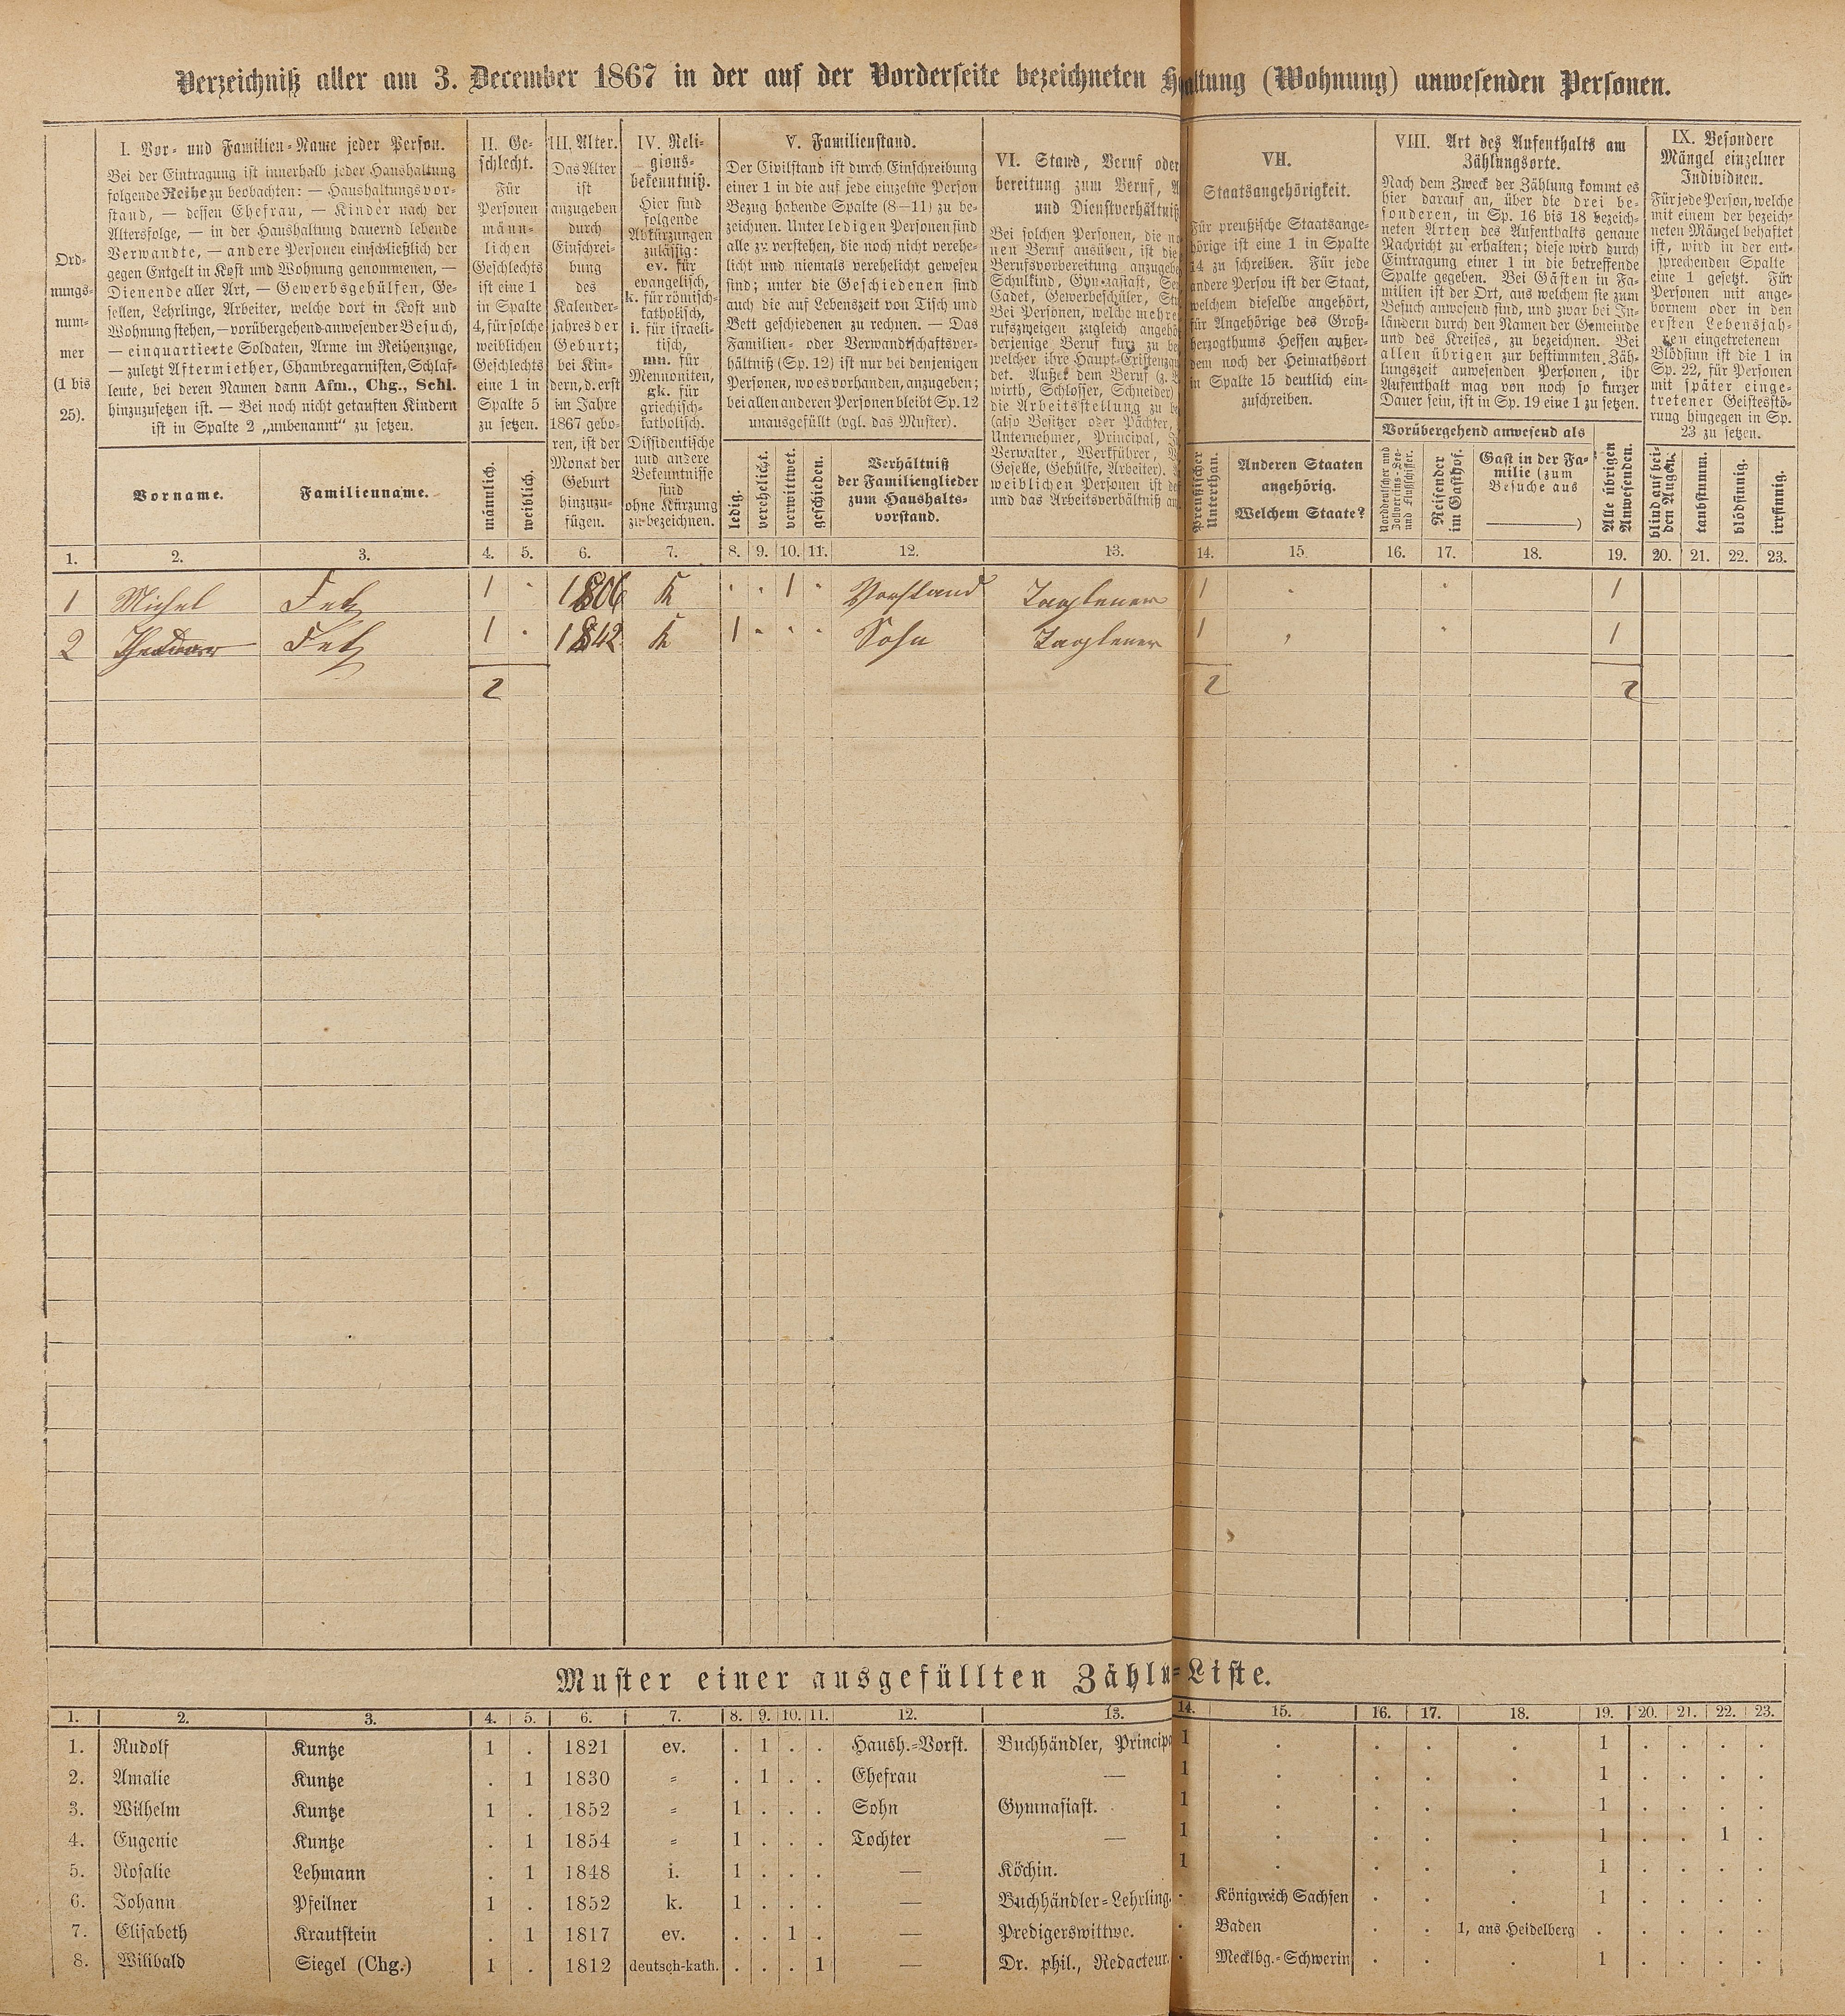 Verzeichniß aller am 3. December 1867 in der auf der Vorderseite bezeichneten H ltung (Wohnung) anwesenden Personen.
Ord-
nungs-
num-
mer
(1 bis
25).
I. Vor- und Familien-Name jeder Person.
Bei der Eintragung ist innerhalb jeder Haushaltung
folgende Reihe zu beobachten: — Haushaltungsvor-
stand, — dessen Ehefrau, — Kinder nach der
Altersfolge, — in der Haushaltung dauernd lebende
Verwandte, — andere Personen einschließlich der
gegen Entgelt in Kost und Wohnung genommenen, —
Dienende aller Art, — Gewerbsgehülfen, Ge-
sellen, Lehrlinge, Arbeiter, welche dort in Kost und
Wohnung stehen, — vorübergehend anwesender Besuch,
— einquartierte Soldaten, Arme im Reihenzuge,
— zuletzt Aftermiether, Chambregarnisten, Schlaf-
leute, bei deren Namen dann Afm., Chg., Schl.
hinzuzusetzen ist. — Bei noch nicht getauften Kindern
ist in Spalte 2 „unbenannt“ zu setzen.
Vorname.
Familienname.
II. Ge-
schlecht.
Für
Personen
männ-
lichen
Geschlechts
ist eine 1
in Spalte
4, für solche
weiblichen
Geschlechts
eine 1 in
Spalte 5
zu setzen.
männlich.
weiblich.
III. Alter.
Das Alter
ist
anzugeben
durch
Einschrei-
bung
des
Kalender-
jahres der
Geburt;
bei Kin-
dern, d. erst
im Jahre
1867 gebo-
ren, ist der
Monat der
Geburt
hinzuzu-
fügen.
IV. Reli-
gions-
bekenntniß.
Hier sind
folgende
Abkürzungen
zulässig:
ev. für
evangelisch,
k. für römisch-
katholisch,
i. für israeli-
tisch,
mn. für
Mennoniten,
gk. für
griechisch-
katholisch.
Dissidentische
und andere
Bekenntnisse
sind
ohne Kürzung
zu bezeichnen.
V. Familienstand.
Der Civilstand ist durch Einschreibung
einer 1 in die auf jede einzelne Person
Bezug habende Spalte (8—11) zu be-
zeichnen. Unter ledigen Personen sind
alle zu verstehen, die noch nicht verehe-
licht und niemals verehelicht gewesen
sind; unter die Geschiedenen sind
auch die auf Lebenszeit von Tisch und
Bett geschiedenen zu rechnen. — Das
Familien- oder Verwandtschaftsver-
hältniß (Sp. 12) ist nur bei denjenigen
Personen, wo es vorhanden, anzugeben;
bei allen anderen Personen bleibt Sp. 12
unausgefüllt (vgl. das Muster).
ledig.
verehelicht.
verwittwet.
geschieden.
Verhältniß
der Familienglieder
zum Haushalts-
vorstand.
VI. Stand, Beruf oder
bereitung zum Beruf, A
und Dienstverhältniß
Bei solchen Personen, die n
nen Beruf ausüben, ist die
Berufsvorbereitung anzugebe
Schulkind, Gymnasiast, Se
Cadet, Gewerbeschüler, St
Bei Personen, welche mehre
rufszweigen zugleich angehö
derjenige Beruf kurz zu be
welcher ihre Haupt-Existenzqu
det. Außer dem Beruf (z. B
wirth, Schlosser, Schneider)
die Arbeitsstellung zu be
(also Besitzer oder Pächter,
Unternehmer, Principal, I
Verwalter, Werkführer, W
Geselle, Gehülfe, Arbeiter).
weiblichen Personen ist de
und das Arbeitsverhältniß an
VII.
Staatsangehörigkeit.
Für preußische Staatsange-
hörige ist eine 1 in Spalte
14 zu schreiben. Für jede
andere Person ist der Staat,
welchem dieselbe angehört,
für Angehörige des Groß-
herzogthums Hessen außer-
dem noch der Heimathsort
in Spalte 15 deutlich ein-
zuschreiben.
Preußischer
Unterthan.
Anderen Staaten
angehörig.
Welchem Staate?
VIII. Art des Aufenthalts am
Zählungsorte.
Nach dem Zweck der Zählung kommt es
hier darauf an, über die drei be-
sonderen, in Sp. 16 bis 18 bezeich-
neten Arten des Aufenthalts genaue
Nachricht zu erhalten; diese wird durch
Eintragung einer 1 in die betreffende
Spalte gegeben. Bei Gästen in Fa-
milien ist der Ort, aus welchem sie zum
Besuch anwesend sind, und zwar bei In-
ländern durch den Namen der Gemeinde
und des Kreises, zu bezeichnen. Bei
allen übrigen zur bestimmten Zäh-
lungszeit anwesenden Personen, ihr
Aufenthalt mag von noch so kurzer
Dauer sein, ist in Sp. 19 eine 1 zu setzen.
Vorübergehend anwesend als
Norddeutscher und
Zollvereins-See-
und Flußschiffer.
Reisender
im Gasthof.
Gast in der Fa-
milie (zum
Besuche aus
)
Alle übrigen
Anwesenden.
IX. Besondere
Mängel einzelner
Individuen.
Für jede Person, welche
mit einem der bezeich-
neten Mängel behaftet
ist, wird in der ent-
sprechenden Spalte
eine 1 gesetzt. Für
Personen mit ange-
bornem oder in den
ersten Lebensjah-
ren eingetretenem
Blödsinn ist die 1 in
Sp. 22, für Personen
mit später einge-
tretener Geistesstö-
rung hingegen in Sp.
23 zu setzen.
blind auf bei-
den Augen.
taubstumm.
blödsinnig.
irrsinnig.
1. 2. 3. 4. 5. 6. 7. 8. 9. 10. 11. 12. 13. 14. 15. 16. 17. 18. 19. 20. 21. 22. 23.
1 Michel Fetz 1 . 1806 K . . 1 . Vorstand Taglener 1 . . 1
2 Fetz 1 . 1842 K 1 . . . Sohn Taglener 1 . . 1
2 2 2
Muster einer ausgefüllten Zählu=Liste.
1. 2. 3. 4. 5. 6. 7. 8. 9. 10. 11. 12. 13. 14. 15. 16. 17. 18. 19. 20. 21. 22. 23.
1. Rudolf Kuntze 1 . 1821 ev. . 1 . . Haush.-Vorst. Buchhändler, Princip 1 . . . . 1 . . . .
2. Amalie Kuntze . 1 1830 = . 1 . . Ehefrau — 1 . . . . 1 . . . .
3. Wilhelm Kuntze 1 . 1852 = 1 . . . Sohn Gymnasiast. 1 . . . . 1 . . . .
4. Eugenie Kuntze . 1 1854 = 1 . . . Tochter — 1 . . . . 1 . . 1 .
5. Rosalie Lehmann . 1 1848 i. 1 . . . — Köchin. 1 . . . . 1 . . . .
6. Johann Pfeilner 1 . 1852 k. 1 . . . — Buchhändler=Lehrling. . Königreich Sachsen . . . 1 . . . .
7. Elisabeth Krautstein . 1 1817 ev. . . 1 . — Predigerswittwe. . Baden . . 1, aus Heidelberg . . . . .
8. Wilibald Siegel (Chg.) 1 . 1812 deutsch-kath. . . . 1 — Dr. phil., Redacteur. . Mecklbg.-Schwerin . . . 1 . . . .